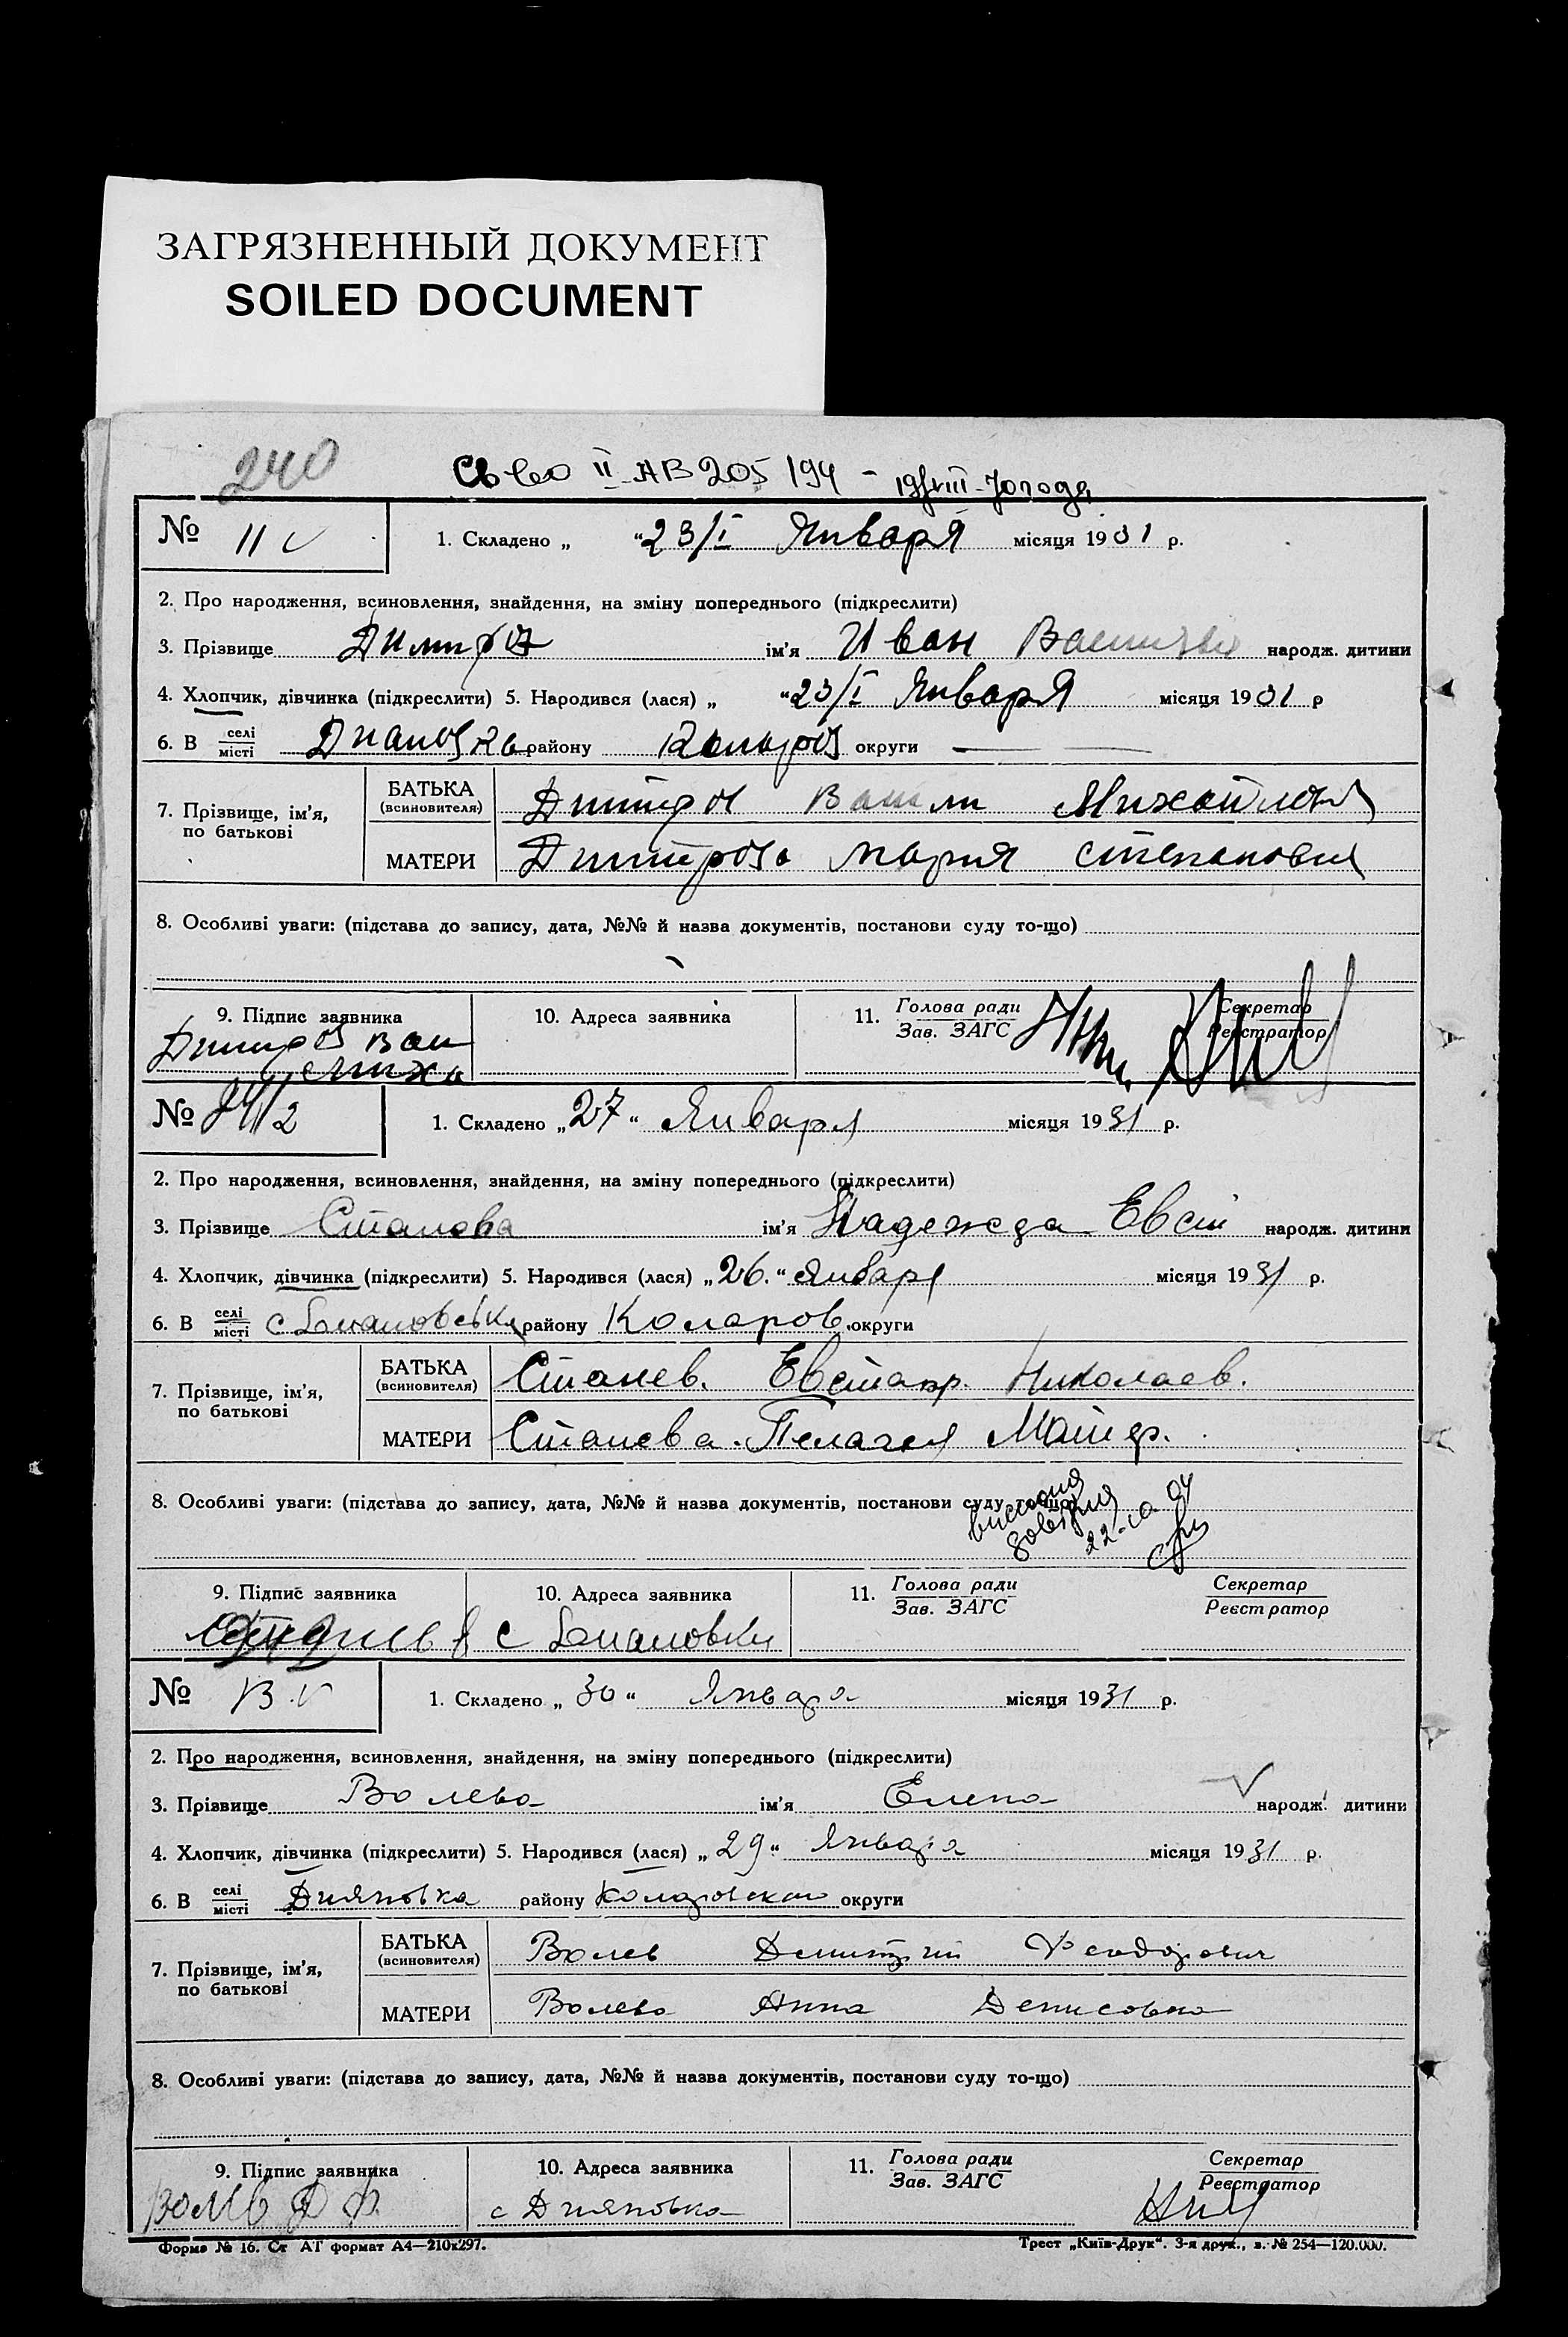 ЗАГРЯЗНЕННЫЙ ДОКУМЕНТ
SOILED DOCUMENT
240
II АВ 205194 -
№ 11
1. Складено „ “ 23/I Января місяця 1931 р.
2. Про народження, всиновлення, знайдення, на зміну попереднього (підкреслити)
3. Прізвище Димитров ім'я Иван народж. дитини
4. Хлопчик, дівчинка (підкреслити) 5. Народився (лася) „ “ 23/I Января місяця 1931 р
6. В селі/місті району Коларов округи —
7. Прізвище, ім'я, по батькові
БАТЬКА (всиновителя) Димитров Васили Михайлов
МАТЕРИ Димитрова Мария Степановна
8. Особливі уваги: (підстава до запису, дата, №№ й назва документів, постанови суду то-що)
9. Підпис заявника
10. Адреса заявника
11. Голова ради / Зав. ЗАГС
Секретар / Реєстратор
Димитров Вас
Миха
№ 12
1. Складено „27“ Января місяця 1931 р.
2. Про народження, всиновлення, знайдення, на зміну попереднього (підкреслити)
3. Прізвище Станева ім'я Надежда Евст народж. дитини
4. Хлопчик, дівчинка (підкреслити) 5. Народився (лася) „26.“ Января місяця 1931 р.
6. В селі/місті району Коларов. округи
7. Прізвище, ім'я, по батькові
БАТЬКА (всиновителя) Станев. Николаев.
МАТЕРИ Станева. Пелагея
8. Особливі уваги: (підстава до запису, дата, №№ й назва документів, постанови суду то-що)
9. Підпис заявника
10. Адреса заявника
11. Голова ради / Зав. ЗАГС
Секретар / Реєстратор
№ 13
1. Складено „30“ Января місяця 1931 р.
2. Про народження, всиновлення, знайдення, на зміну попереднього (підкреслити)
3. Прізвище Волева ім'я Елена народж. дитини
4. Хлопчик, дівчинка (підкреслити) 5. Народився (лася) „29“ Января місяця 1931 р.
6. В селі/місті Дияновка району Коларовского округи
7. Прізвище, ім'я, по батькові
БАТЬКА (всиновителя) Волев Димитрий Феодорович
МАТЕРИ Волева Анна Денисовна
8. Особливі уваги: (підстава до запису, дата, №№ й назва документів, постанови суду то-що)
9. Підпис заявника
10. Адреса заявника
11. Голова ради / Зав. ЗАГС
Секретар / Реєстратор
Волев Д Ф.
с Дияновка
Форма № 16. Ст АТ формат А4—210х297.
Трест „Київ-Друк“. 3-я друк., з. № 254—120.000.